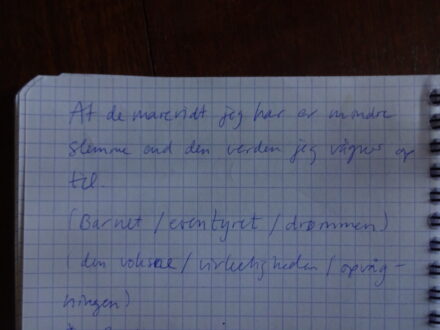 At de mareridt jeg har er mindre
slemme end den verden jeg vågner op
til.
(Barnet / eventyret / drømmen)
(den voksne / virkeligheden / opvåg-
ningen)